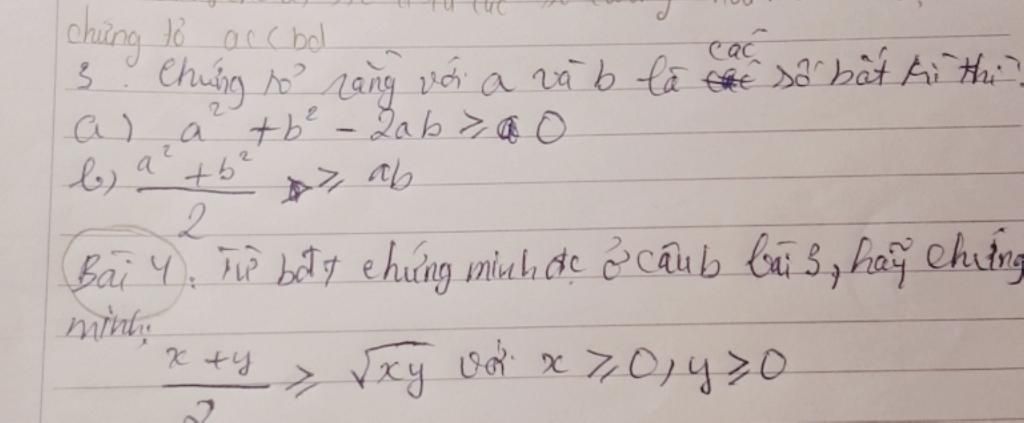 chứng tỏ ac < bd
3. Chứng tỏ rằng với a và b là các số bất kì thì:
a) a² + b² - 2ab ≥ 0
b) a² + b² / 2 ≥ ab
Bài 4: Từ bđt chứng minh đc ở câu b bài 3, hãy chứng
minh:
x + y / 2 ≥ √xy với x ≥ 0, y ≥ 0